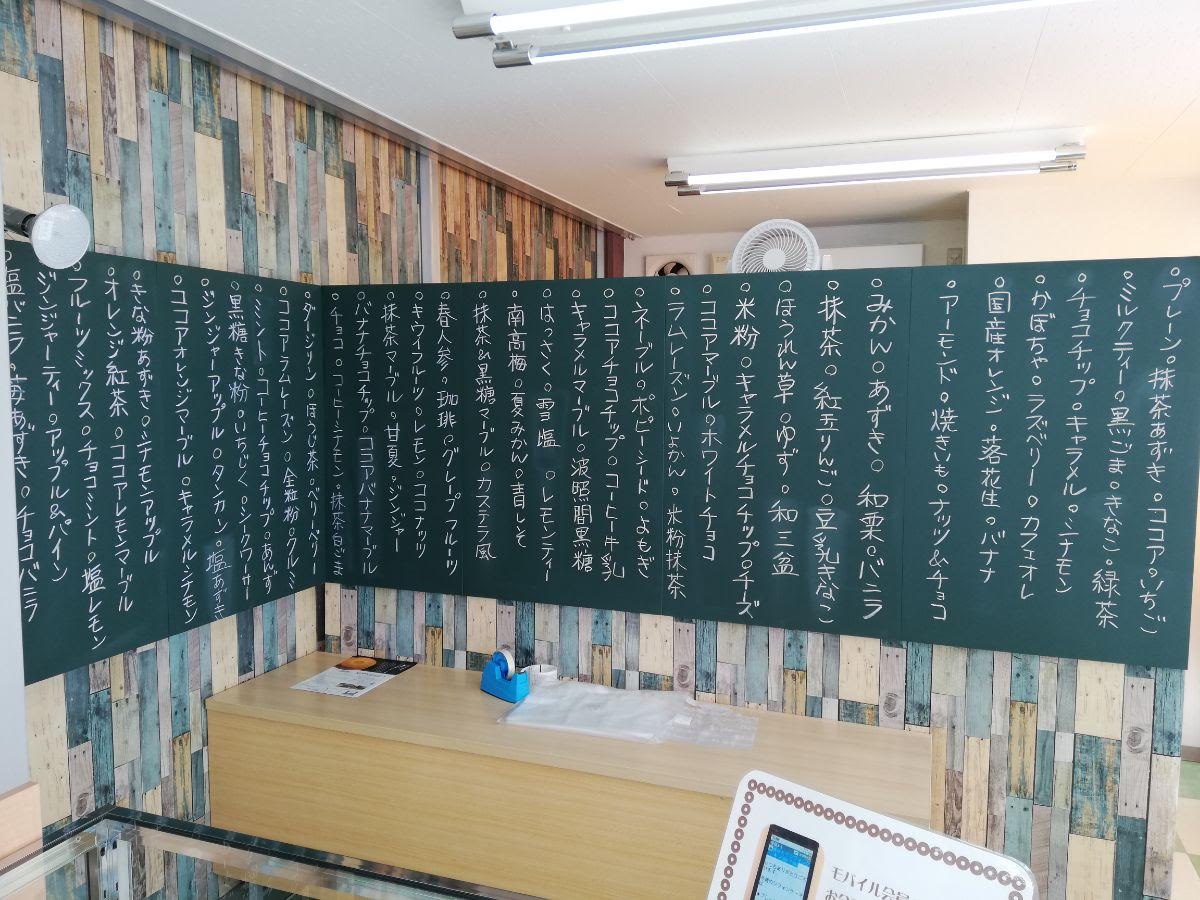 プレーン。抹茶あずき。ココア。いちご
ミルクティー。黒ごま。きなこ。緑茶
チョコチップ。キャラメル。シナモン
かぼちゃ。ラズベリー。カフェオレ
国産オレンジ。落花生。バナナ
アーモンド。焼きいも。ナッツ&チョコ
みかん。あずき。和栗。バニラ
抹茶。紅玉りんご。豆乳きなこ
ほうれん草。ゆず。和三盆
米粉。キャラメルチョコチップ。チーズ
ココアマーブル。ホワイトチョコ
ラムレーズン。いよかん。米粉抹茶
ネーブル。ポピーシード。よもぎ
ココアチョコチップ。コーヒー牛乳
キャラメルマーブル。波照間黒糖
はっさく。雪塩。レモンティー
南高梅。夏みかん。青しそ
抹茶&黒糖マーブル。カステラ風
春人参。珈琲。グレープフルーツ
キウイフルーツ。レモン。ココナッツ
抹茶マーブル。甘夏。ジンジャー
バナナチョコチップ。ココアバナナマーブル
チョコ。コーヒーシナモン。抹茶白ごま
ダージリン。ほうじ茶。ベリーベリー
ココアラムレーズン。全粒粉。クルミ
ミント。コーヒーチョコチップ。あんず
黒糖きな粉。いちじく。シークワーサー
ジンジャーアップル。タンカン。塩あずき
ココアオレンジマーブル。キャラメルシナモン
きな粉あずき。シナモンアップル
オレンジ紅茶。ココアレモンマーブル
フルーツミックス。チョコミント。塩レモン
ジンジャーティー。アップル&パイン
塩バニラ。苺あずき。チョコバニラ
モバイル会員